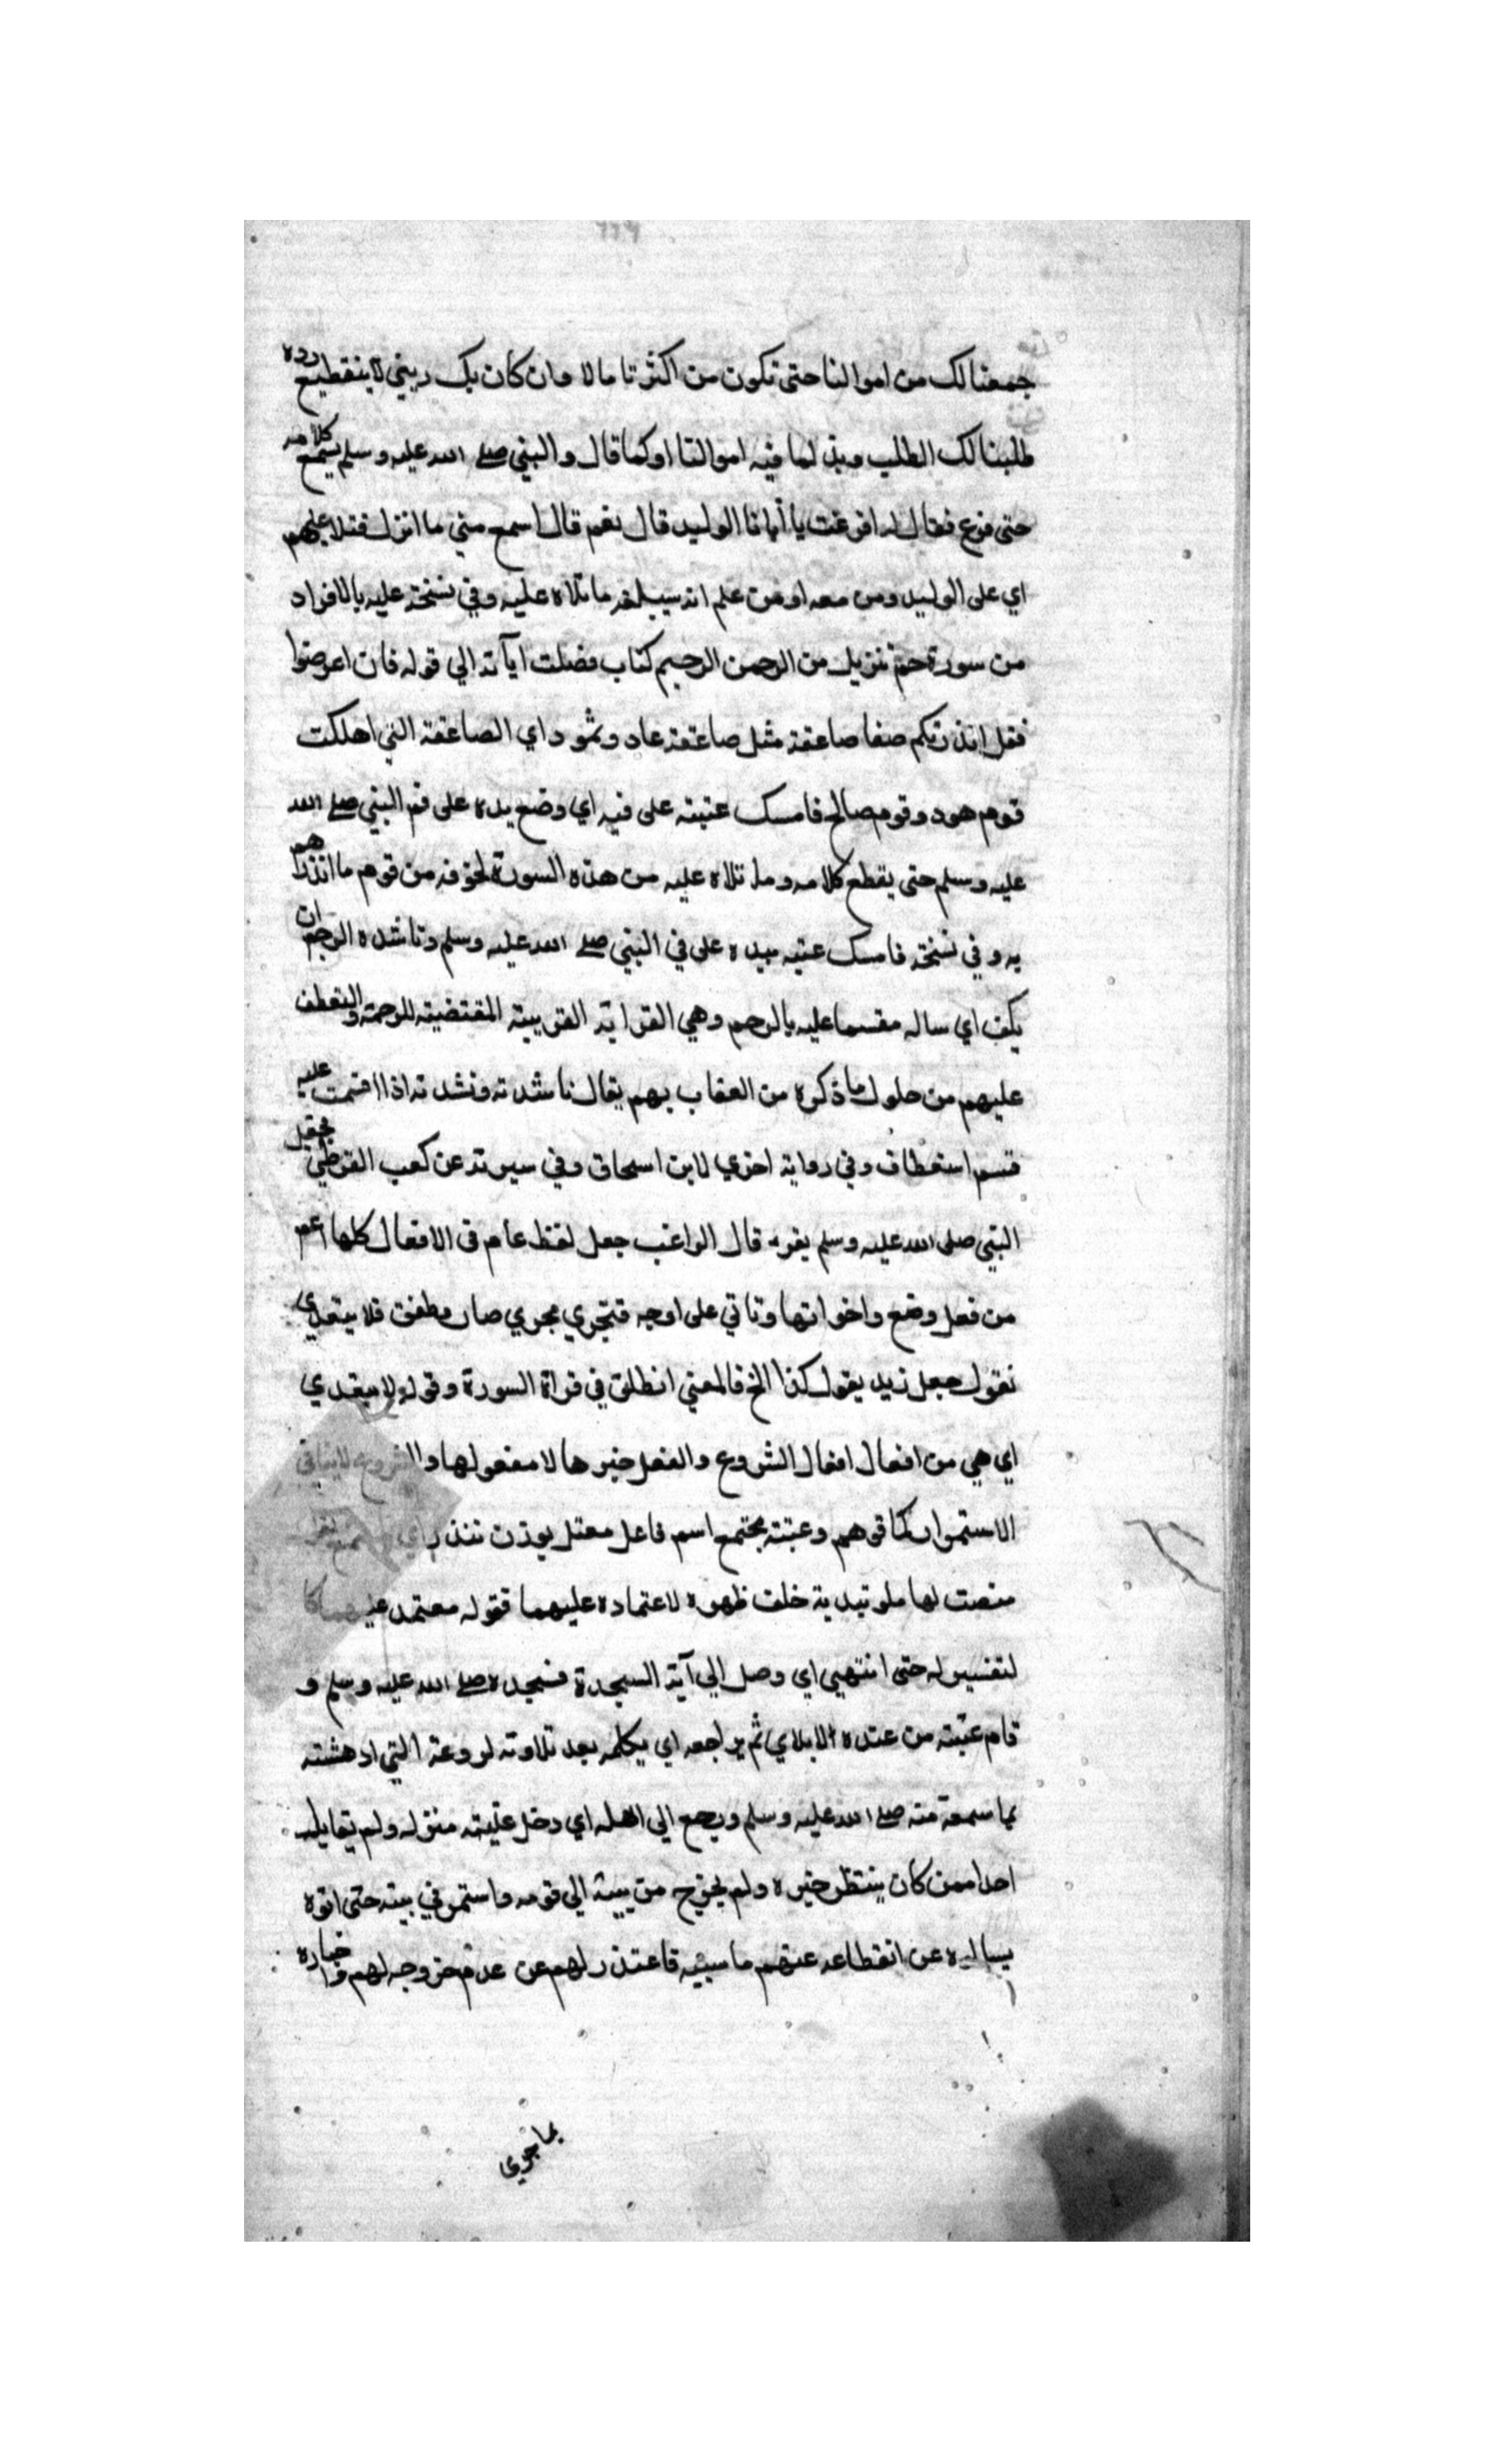 جمعنا لك من اموالنا حتى تكون من اكثرنا مالا وان كان بك ريئي لا ينقطيع رده
طلبنا لك الطلب وبذلما فيه اموالنا اوكما قال والنبي صلے الله عليه وسلم يسمع كلامه
حتى فرغ فقال له افرغت يا أبا الوليد قال نعم قال اسمع مني ما انزل فتلا عليهم
اي على الوليد ومن معه او من علم انه سيبلغه ما تلاه عليه وفي نسخة عليه بالافراد
من سورة حم تنزيل من الرحمن الرحيم كتاب فصلت اياته الي قوله فان اعرضوا
فقل انذرتكم صفا صاعقة مثل صاعقة عاد وثمود اي الصاعقة التي اهلكت
قوم هود وقوم صالح فامسك عتبته على فيه اي وضع يده على فم النبي صلے الله
عليه وسلم حتى يقطع كلامه وما تلاه عليه من هذه السورة لخوفه من قوم ما انذرهم
به وفي نسخة فامسك عتبه بيده على في النبي صلے الله عليه وسلم وناشده الرحم ان
يكف اي ساله مقسما عليه بالرحم وهي القرابة القريبة المقتضية للرحمة والتعطف
عليهم من حلول ما ذكره من العقاب بهم يقال ناشدته ونشدته اذا اقتمت عليه
قسم استعطاف وفي رواية اخري لابن اسحاق وفي سيرته عن كعب القرظي فجعل
النبي صلى الله عليه وسلم يقرء قال الراغب جعل لفظ عام في الافعال كلها اعم
من فعل وضع واخواتها وتاتي على اوجه فتجري مجري صار وطفق فلا يتعدي
نقول جعل زيد يقول كذا الخ فالمعني انطلق في قراة السورة وقوله لا يتعدي
اي هي من افعال افعال الشروع والفعل خبرها لا مفعولها والشروع لا ينافي
الاستمرار كما توهم وعتبته مجتمع اسم فاعل معتل بوزن
منصت لها ملق يديه خلف ظهره لاعتماده عليهما فقوله معتمد عليهما كا
لتفسير له حتى انتهي اي وصل الي آية السجدة فسجد صلے الله عليه وسلم و
قام عتبته من عنده لا يدري ثم يراجعه اي يكلمه بعد تلاوته لروعة التي ادهشته
بما سمعه منه صلے الله عليه وسلم ورجع الي اهله اي دخل عتبته منزله ولم يقابله
احدا ممن كان ينتظر خبره ولم يخرج من بيته الي قومه واستمر في بيته حتى اتوه
يسالوه عن انقطاعه عنهم ما سببه فاعتذر لهم عن عدم خروجه لهم واخباره
بما جري